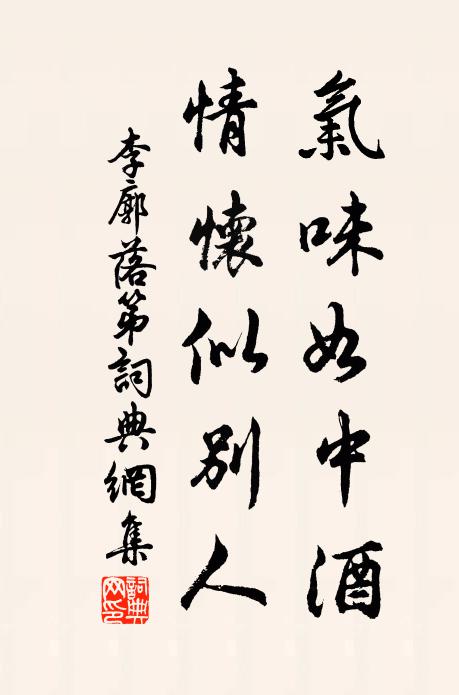 氣味如中酒
情懷似別人
李廓落第詞典網集
詞典
网印